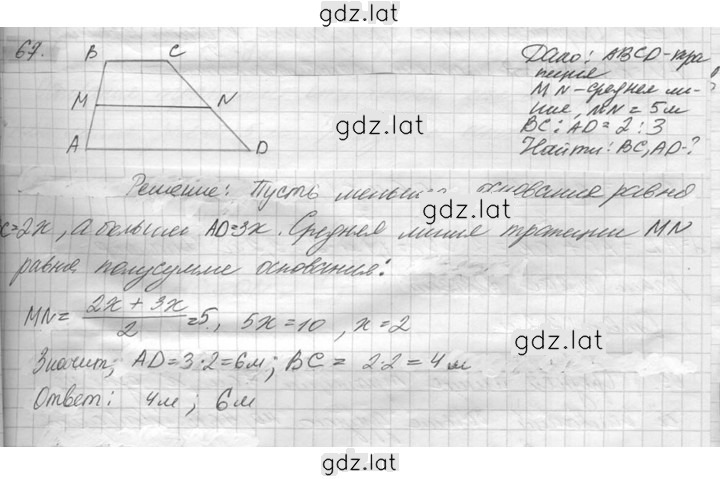 gdz.lat
67.
B C
M N
A D
Дано: ABCD-тра
пеция
MN-средняя ли-
ние, MN = 5м
BC:AD = 2:3
Найти: BC, AD-?
gdz.lat
Решение: Пусть основания равно
gdz.lat
C=2x, а большим AD=3x. Средняя линия трапеции MN
равна полусумме основания:
MN = (2x + 3x)/2 = 5, 5x = 10, x = 2
gdz.lat
Значит, AD = 3·2 = 6м; BC = 2·2 = 4м
Ответ: 4м; 6м
gdz.lat